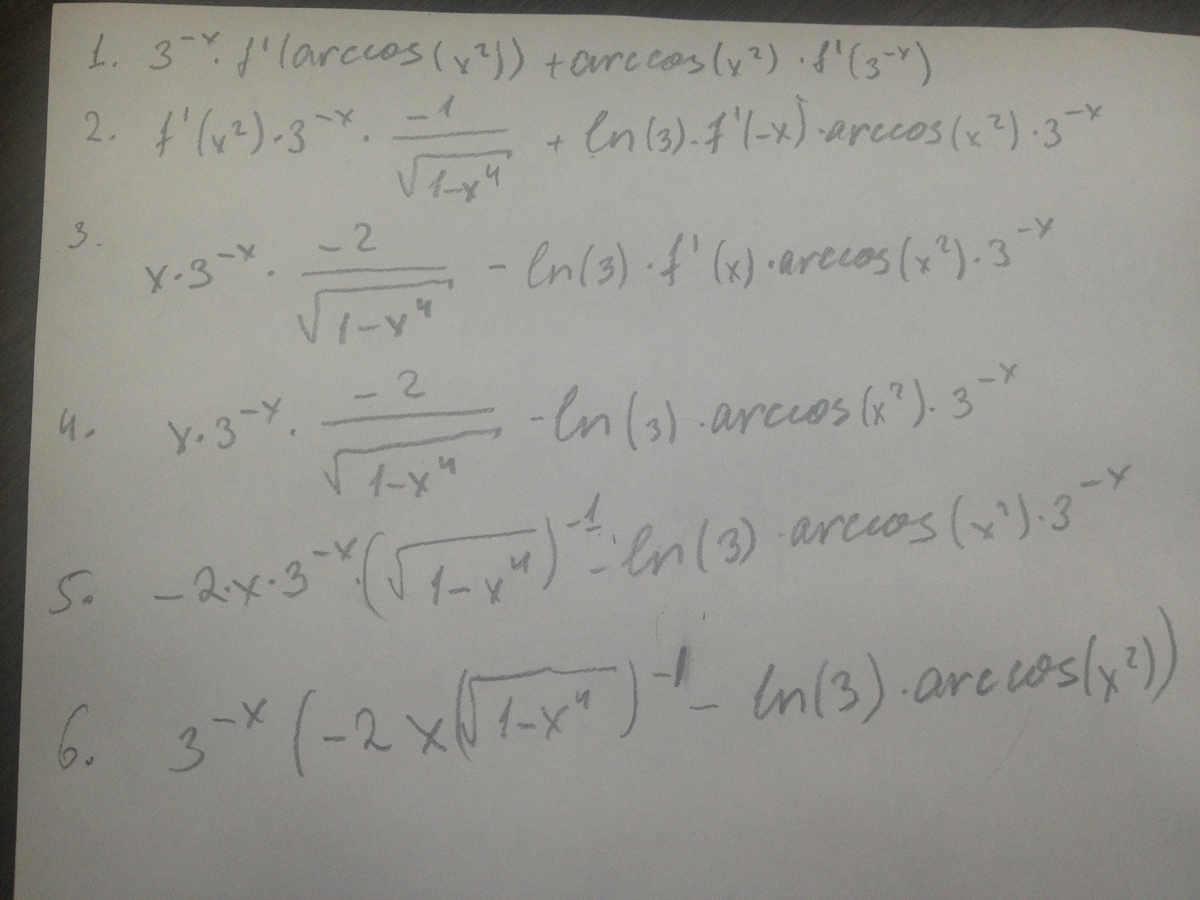 1. 3^{-x} · f'(arccos(x²)) + arccos(x²) · f'(3^{-x})
2. f'(x²) · 3^{-x} · \frac{-1}{\sqrt{1-x^4}} + ln(3) · f'(-x) · arccos(x²) · 3^{-x}
3. x · 3^{-x} · \frac{-2}{\sqrt{1-x^4}} - ln(3) · f'(x) · arccos(x²) · 3^{-x}
4. x · 3^{-x} · \frac{-2}{\sqrt{1-x^4}} - ln(3) · arccos(x²) · 3^{-x}
5. -2 · x · 3^{-x} · (\sqrt{1-x^4})^{-1} - ln(3) · arccos(x²) · 3^{-x}
6. 3^{-x} (-2 x (\sqrt{1-x^4})^{-1} - ln(3) · arccos(x²))